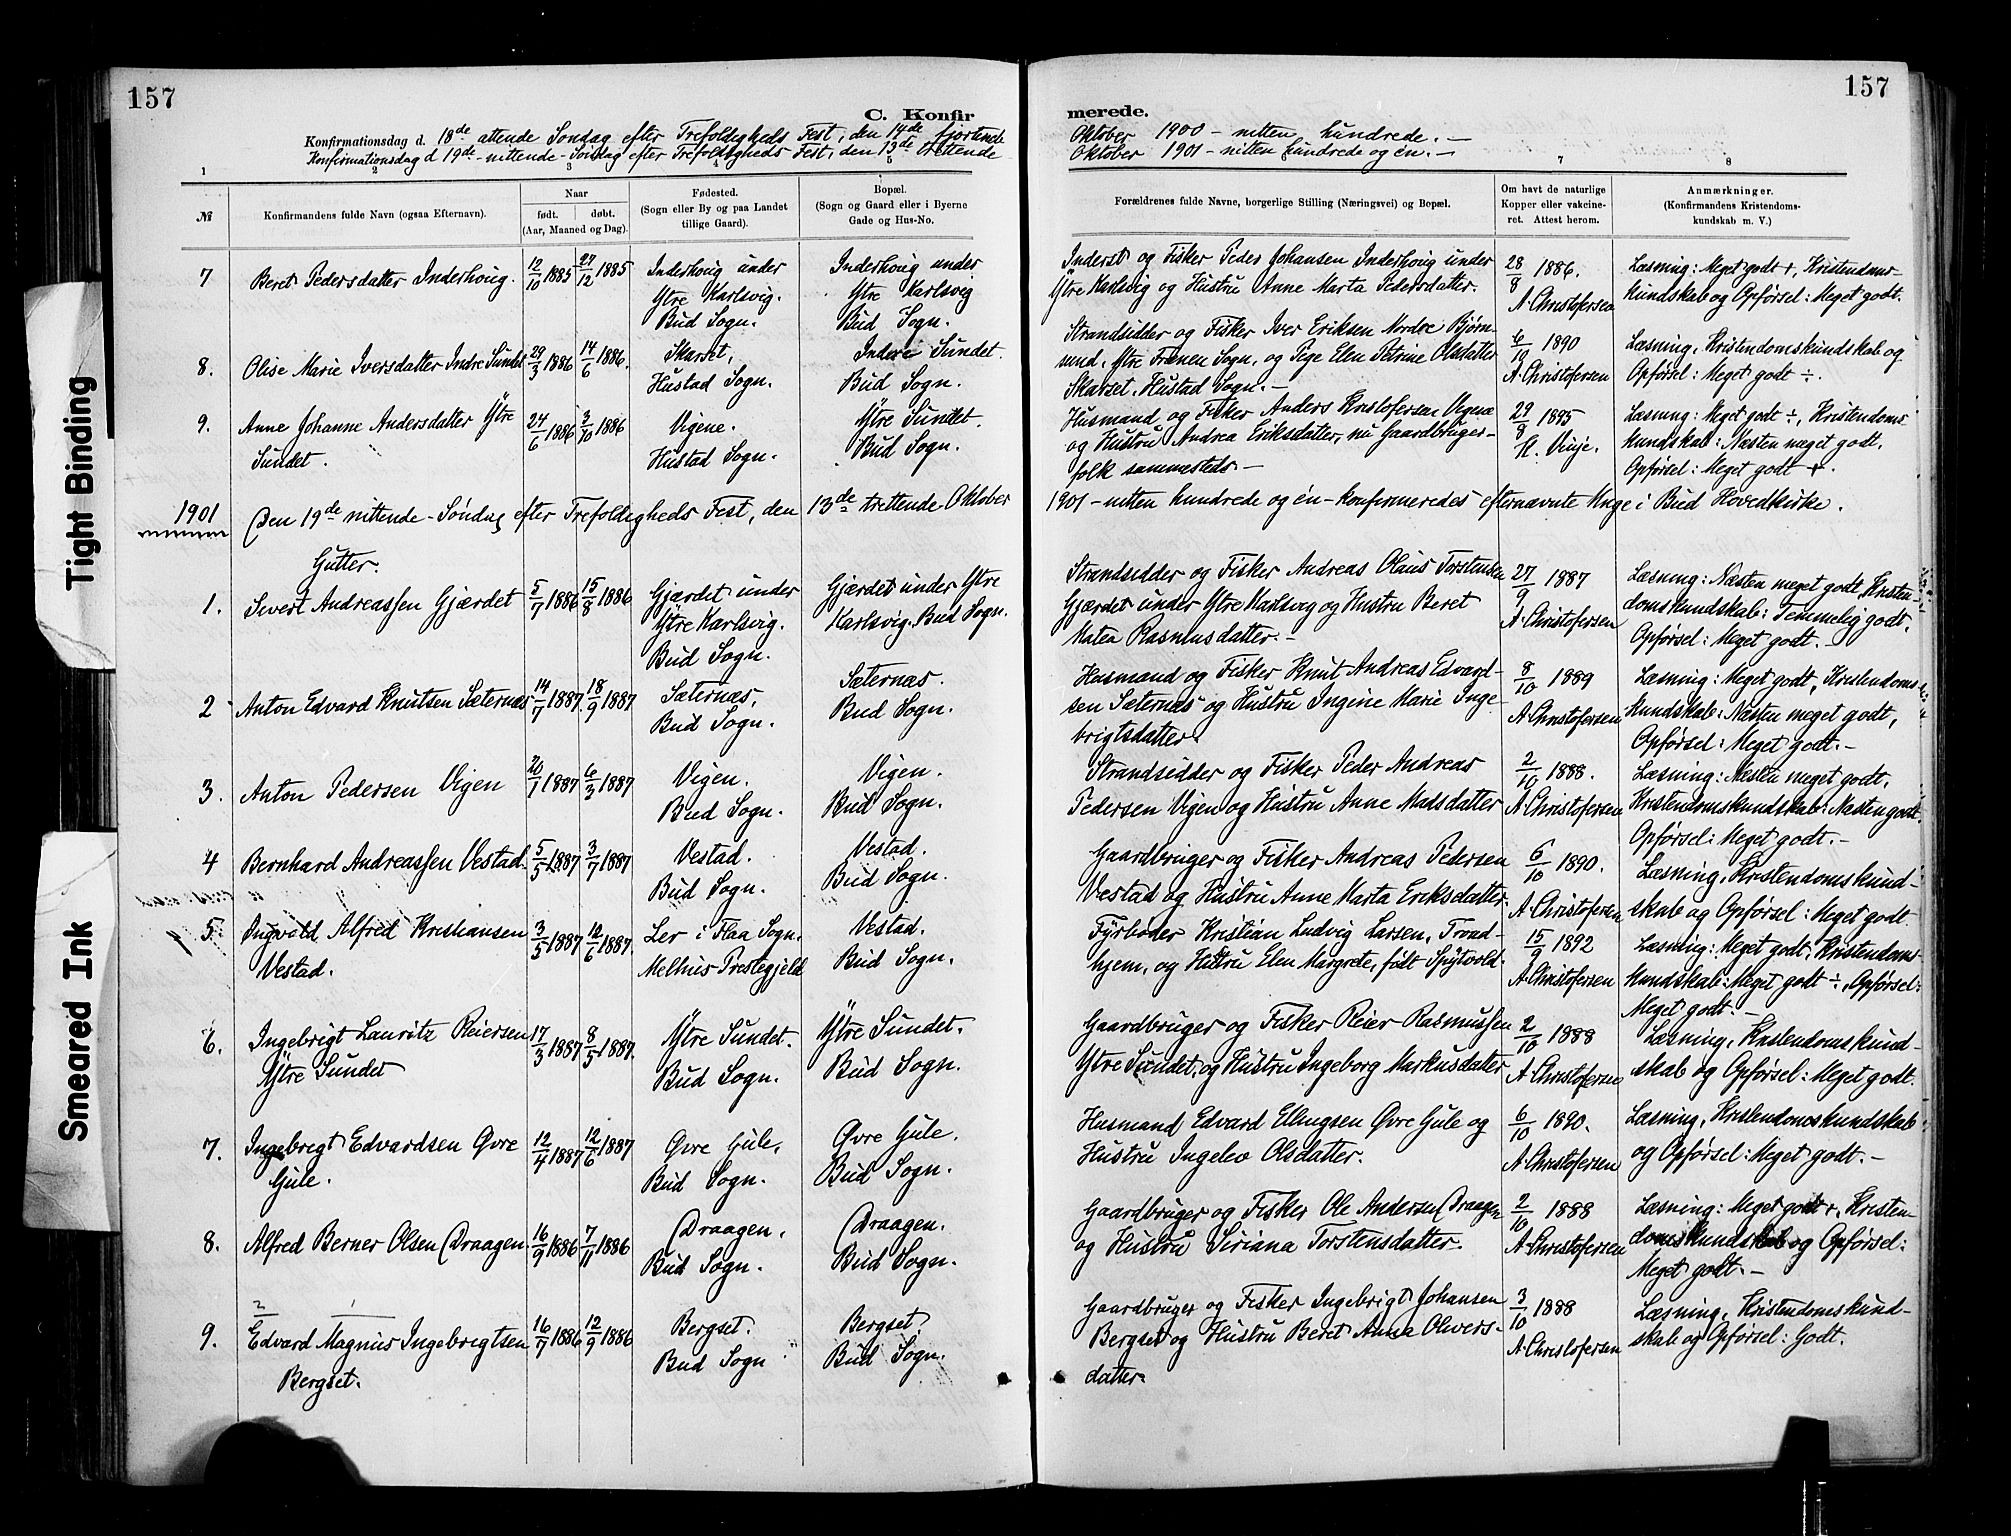 157
157
C. Konfir
merede.
Konfirmationsdag d. 18de attende Søndag efter Trefoldigheds Fest, den 14de fjortende
Oktober 1900 - nitten hundrede. -
Konfirmationsdag d 19de - nittende - Søndag efter Trefoldigheds Fest, den 13de trettende
Oktober 1901 - nitten hundrede og én. -
1 2 3 4 5
7 8
№
Konfirmandens fulde Navn (ogsaa Efternavn).
Naar
født. døbt.
(Aar, Maaned og Dag).
Fødested.
(Sogn eller By og paa Landet
tillige Gaard).
Bopæl.
(Sogn og Gaard eller i Byerne
Gade og Hus-No.
Forældrenes fulde Navne, borgerlige Stilling (Næringsvei) og Bopæl.
Om havt de naturlige
Kopper eller vakcine-
ret. Attest herom.
Anmærkninger.
(Konfirmandens Kristendoms-
kundskab m. V.)
7
Beret Pedersdatter Inderhoug.
12/10 1885
27/12 1885
Inderhoug under
Ytre Karlsvig.
Bud Sogn.
Inderhoug under
Ytre Karlsvig
Bud Sogn.
Inderst og Fisker Peder Johansen Inderhoug under
Ytre Karlsvig og Hustru Anne Marta Pedersdatter.
28/8 1886.
A. Christofersen
Læsning: Meget godt +, Kristendoms-
kundskab og Opførsel: Meget godt.
8.
Olise Marie Iversdatter Indre Sundet
29/3 1886
14/6 1886.
Skarset,
Hustad Sogn.
Indere Sundet.
Bud Sogn.
Strandsidder og Fisker Iver Eriksen Nordre Bjørn-
sund, Ytre Frænen Sogn, og Pige Elen Petrine Olsdatter
Skarset, Hustad Sogn. -
6/10 1890
A. Christofersen
Læsning, Kristendomskundskab og
Opførsel: Meget godt ÷.
9.
Anne Johanne Andersdatter Ytre
Sundet.
24/6 1886
3/10 1886
Vigene.
Hustad Sogn.
Ytre Sundet.
Bud Sogn.
Husmand og Fisker Anders Kristofersen Vigene
og Hustru Andrea Eriksdatter, nu Gaardbruger-
folk sammesteds. -
29/8 1895
H. Vinje.
Læsning: Meget godt ÷, Kristendoms
kundskab: Næsten meget godt,
Opførsel: Meget godt +.
1901
Den 19de nittende - Søndag efter Trefoldigheds Fest, den 13de trettende Oktober
1901 - nitten hundrede og én - konfirmeredes efternævnte Unge i Bud Hovedkirke.
Gutter.
1.
Sivert Andreassen Gjærdet
5/7 1886
15/8 1886
Gjærdet under
Ytre Karlsvig.
Bud Sogn.
Gjærdet under Ytre
Karlsvig. Bud Sogn.
Strandsidder og Fisker Andreas Olaus Torstensen
Gjærdet under Ytre Karlsvig og Hustru Beret
Mater Rasmusdatter. -
27/9 1887
A. Christofersen
Læsning: Næsten meget godt, Kristen-
domskundskab: Temmelig godt,
Opførsel: Meget godt. -
2
Anton Edvard Knutsen Sæternæs
14/7 1887
18/9 1887
Sæternæs,
Bud Sogn.
Sæternæs.
Bud Sogn.
Husmand og Fisker Knut Andreas Edvard-
sen Sæternæs og Hustru Ingine Marie Inge-
brigtsdatter.
8/10 1889
A. Christofersen
Læsning: Meget godt, Kristendoms
kundskab: Næsten meget godt,
Opførsel: Meget godt. -
3.
Anton Pedersen Vigen
/1 1887
6/3 1887
Vigen.
Bud Sogn.
Vigen.
Bud Sogn.
Strandsidder og Fisker Peder Andreas
Pedersen Vigen og Hustru Anne Madsdatter
2/10 1888.
A. Christofersen
Læsning: Næsten meget godt,
Kristendomskundskab: Næsten godt.
Opførsel: Meget godt. -
4
Bernhard Andreassen Vestad.
5/5 1887
3/7 1887
Vestad.
Bud Sogn.
Vestad.
Bud Sogn.
Gaardbruger og Fisker Andreas Pedersen
Vestad og Hustru Anne Marta Eriksdatter.
6/10 1890.
A. Christofersen
Læsning, Kristendomskund-
skab og Opførsel: Meget godt
5.
Ingvald Alfred Kristiansen
Vestad.
3/5 1887
12/6 1887.
Ler i Flaa Sogn,
Melhus Prestegjeld
Vestad.
Bud Sogn.
Fyrbøder Kristian Ludvig Larsen, Trond-
hjem, og Hustru Elen Margrete, født Spjøtvold.
15/9 1892
A. Christofersen
Læsning: Meget godt, Kristendoms-
kundskab: Meget godt ÷, Opførsel:
Meget godt. -
6.
Ingebrigt Lauritz Reiersen
Ytre Sundet
17/3 1887
8/5 1887.
Ytre Sundet.
Bud Sogn.
Ytre Sundet.
Bud Sogn.
Gaardbruger og Fisker Reier Rasmussen
Ytre Sundet, og Hustru Ingeborg Markusdatter
2/10 1888
A. Christofersen
Læsning, Kristendomskund-
skab og Opførsel: Meget godt.
7.
Ingebrigt Edvardsen Øvre
Gule.
12/4 1887
12/6 1887
Øvre Gule,
Bud Sogn.
Øvre Gule.
Bud Sogn.
Husmand Edvard Ellingsen Øvre Gule og
Hustru Ingelev Olsdatter.
6/10 1890.
A. Christofersen
Læsning, Kristendomskundskab
og Opførsel: Meget godt. -
8.
Alfred Berner Olsen Draagen.
16/9 1886
7/11 1886
Draagen,
Bud Sogn.
Draagen.
Bud Sogn.
Gaardbruger og Fisker Ole Andersen Draagen
og Hustru Siriana Torstensdatter.
2/10 1888
A. Christofersen
Læsning: Meget godt +, Kristen-
domskundskab og Opførsel:
Meget godt. -
9.
2 1
Edvard Magnus Ingebrigtsen
Bergset.
16/7 1886
12/9 1886
Bergset.
Bud Sogn
Bergset
Bud Sogn.
Gaardbruger og Fisker Ingebrigt Johansen
Bergset og Hustru Beret Anna Olivers-
datter.
3/10 1888
A. Christofersen
Læsning, Kristendomskund-
skab og Opførsel: Godt.
Tight Binding
Smeared Ink